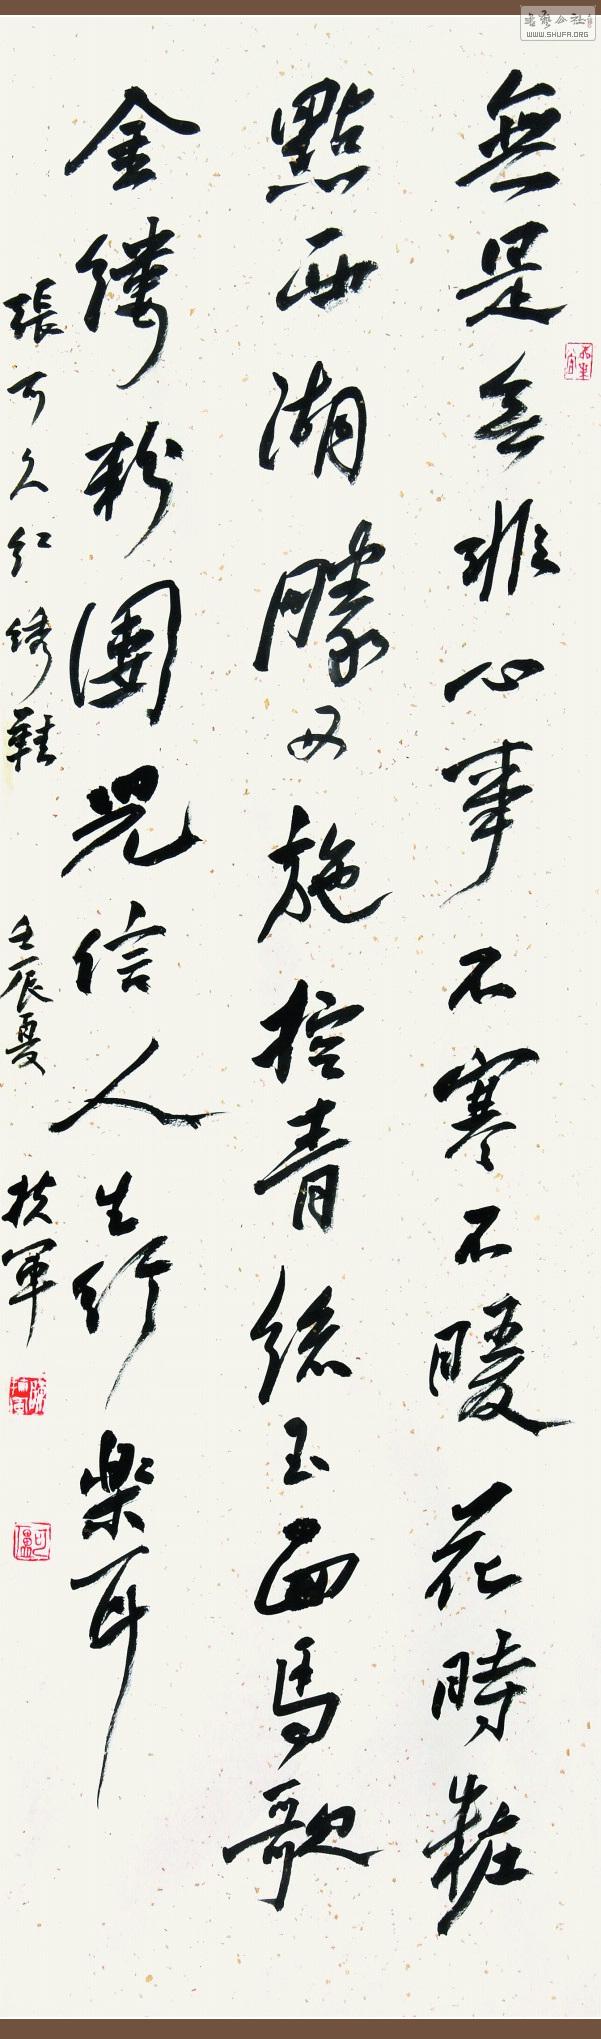 無是無非心事不寒不暖花時妝
點西湖勝西施控青絲玉面馬歌
金縷粉團兒信人生行樂耳
張可久紅繡鞋
壬辰夏
扶軍
書藝公社
WWW.SHUFA.ORG